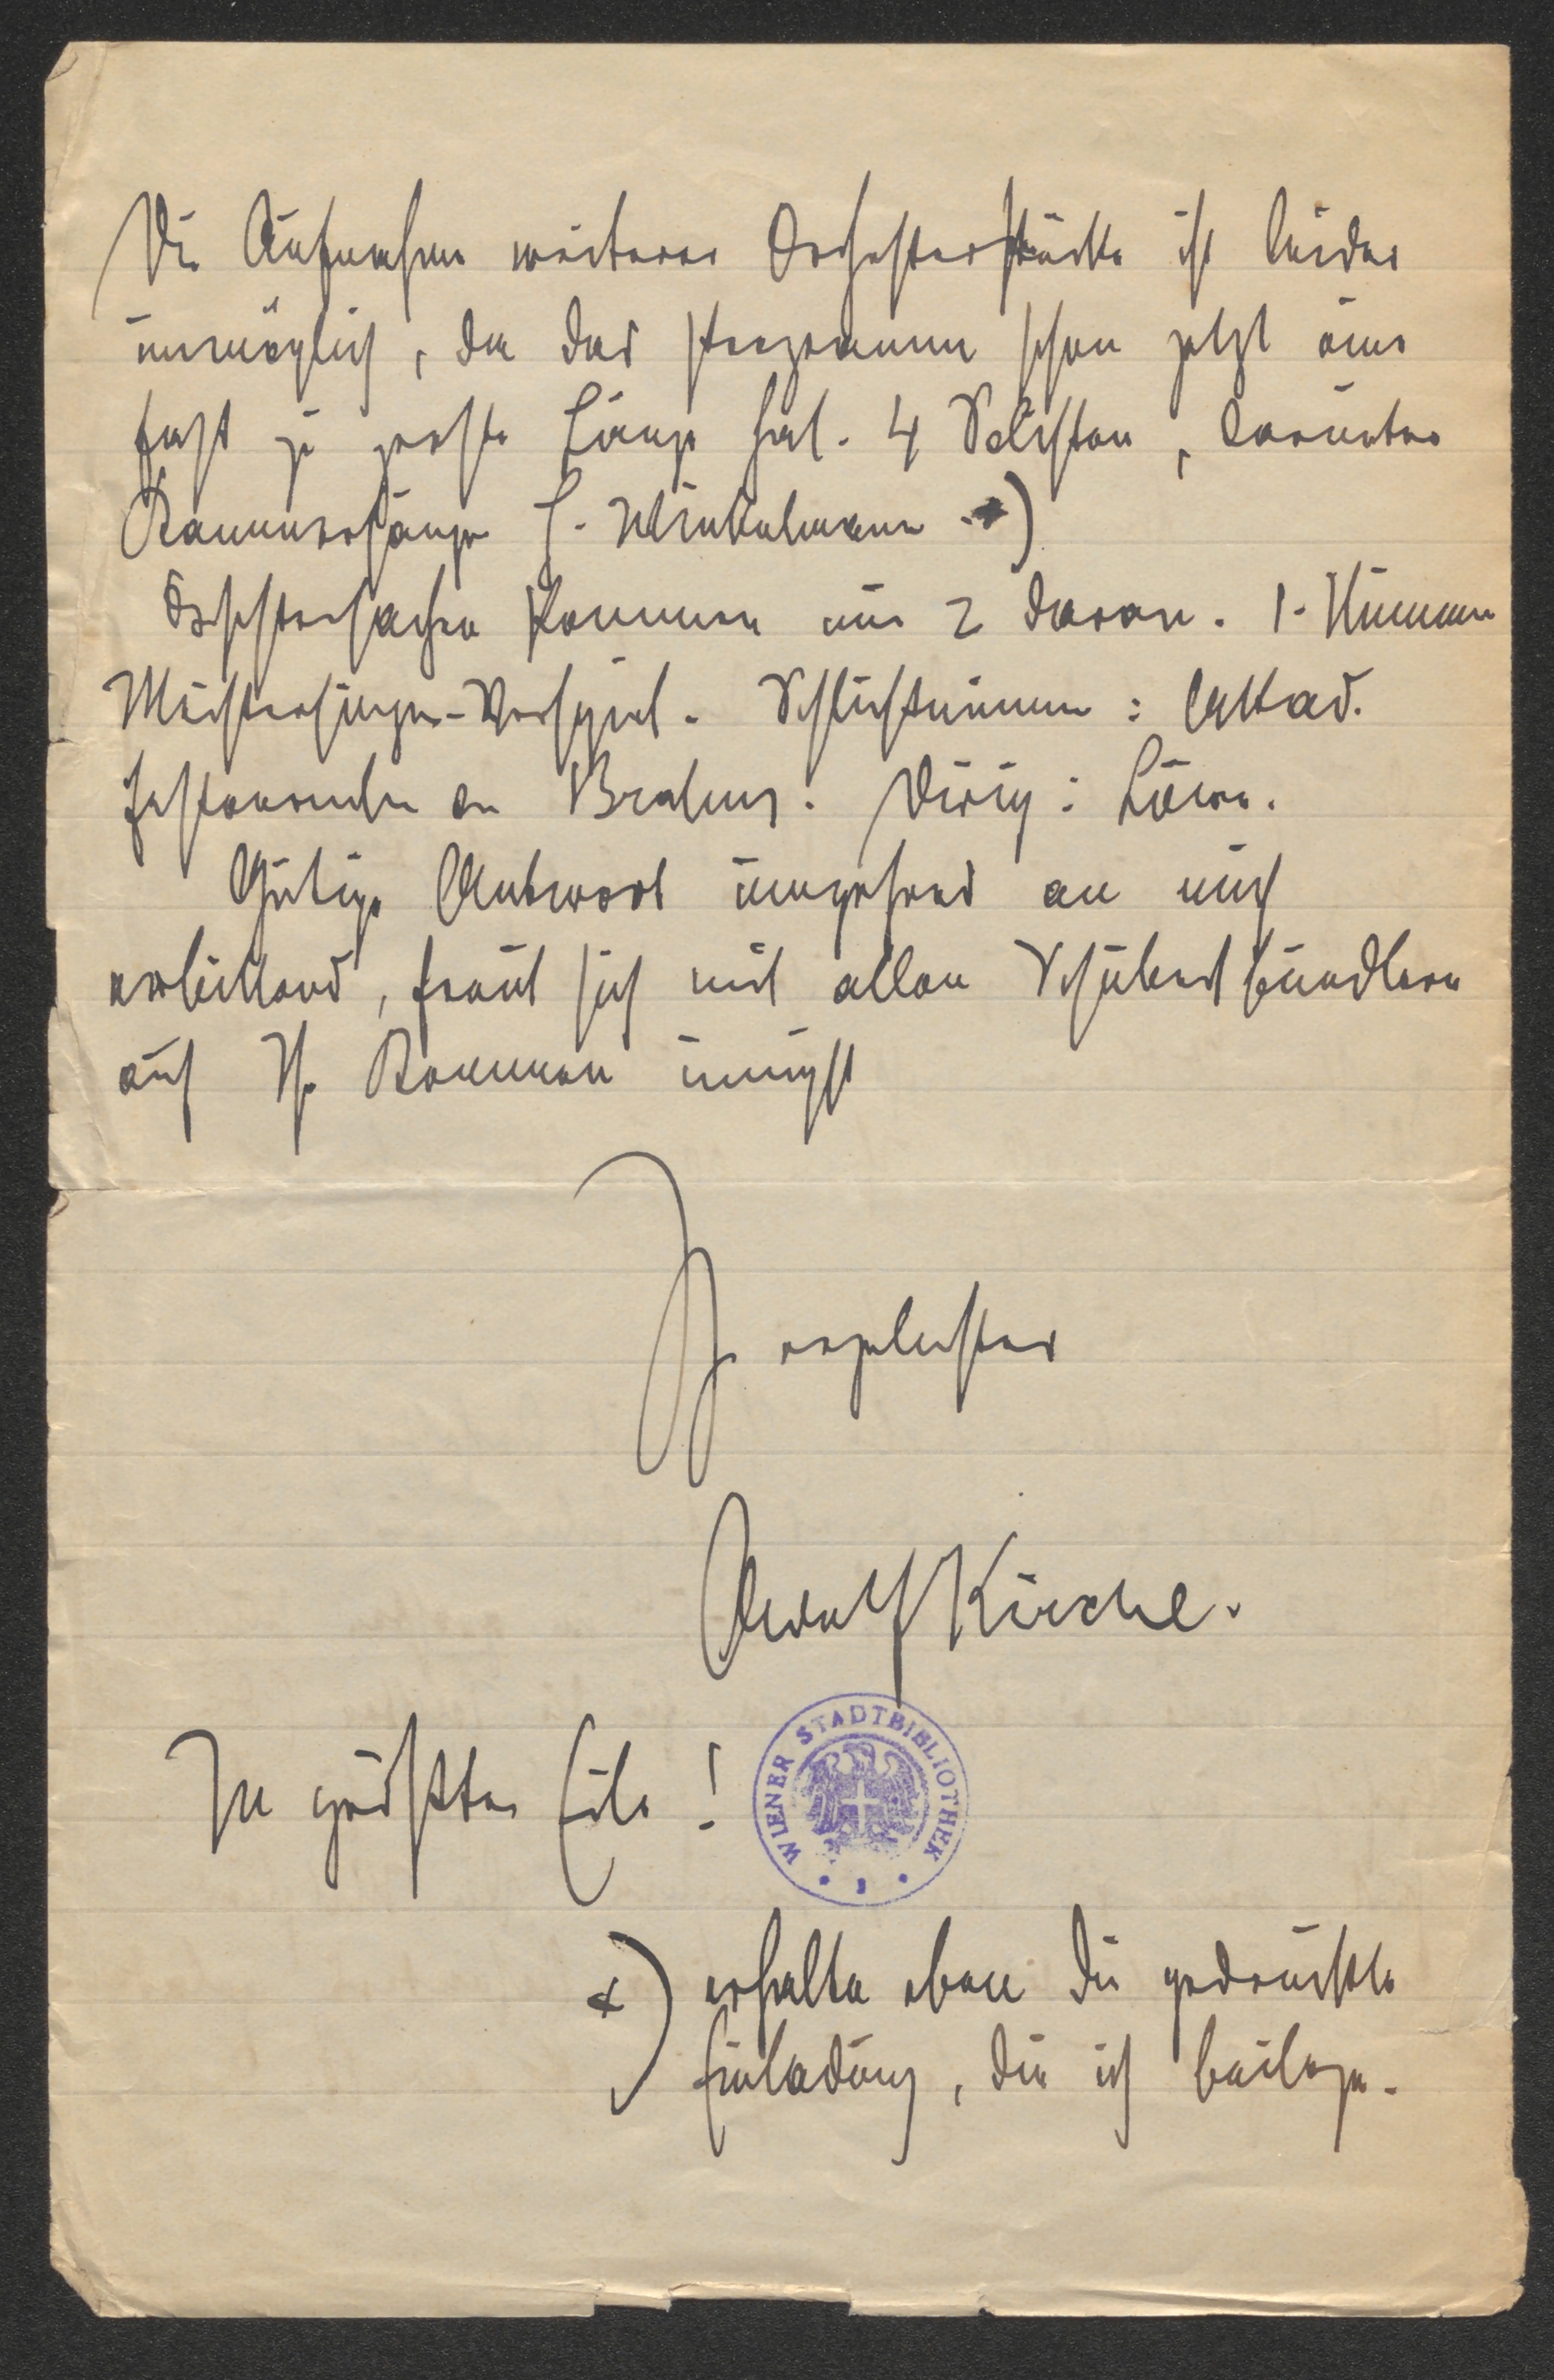 Die Aufnahme weiterer Orchesterstücke ist leider
unmöglich, da das Programm schon jetzt eine
fast zu große Länge hat. 4 Solisten, darunter
Kammersänger H. Winkelmann *)
Orchestersachen kommen nur 2 daran. 1. Nummer
Meistersinger-Vorspiel. Schlußnummer: Akad.
Festouverture v. Brahms. Dirig: Löwe.
Gütige Antwort umgehend an mich
erbittend, freut sich mit allen Schubertbündlern
auf Ihr Kommen innigst
Ihr ergebenster
Adolf Kirchl.
In größter Eile!
WIENER STADTBIBLIOTHEK
*) erhalte eben die gedruckte
Einladung, die ich beilege.